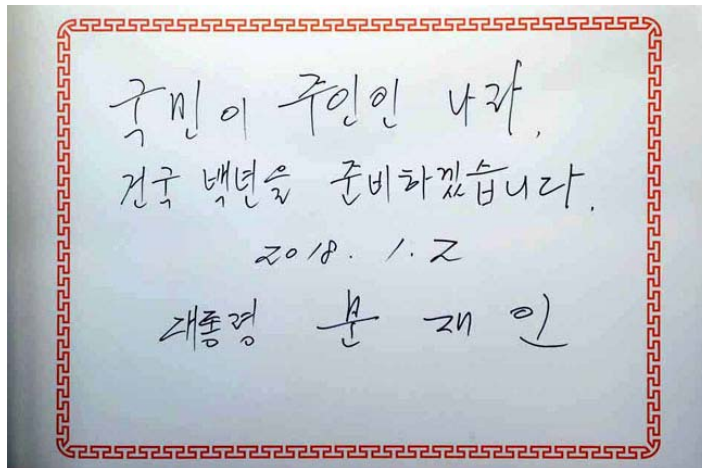 국민이 주인인 나라,
건국 백년을 준비하겠습니다.
2018. 1. 2
대통령 문재인